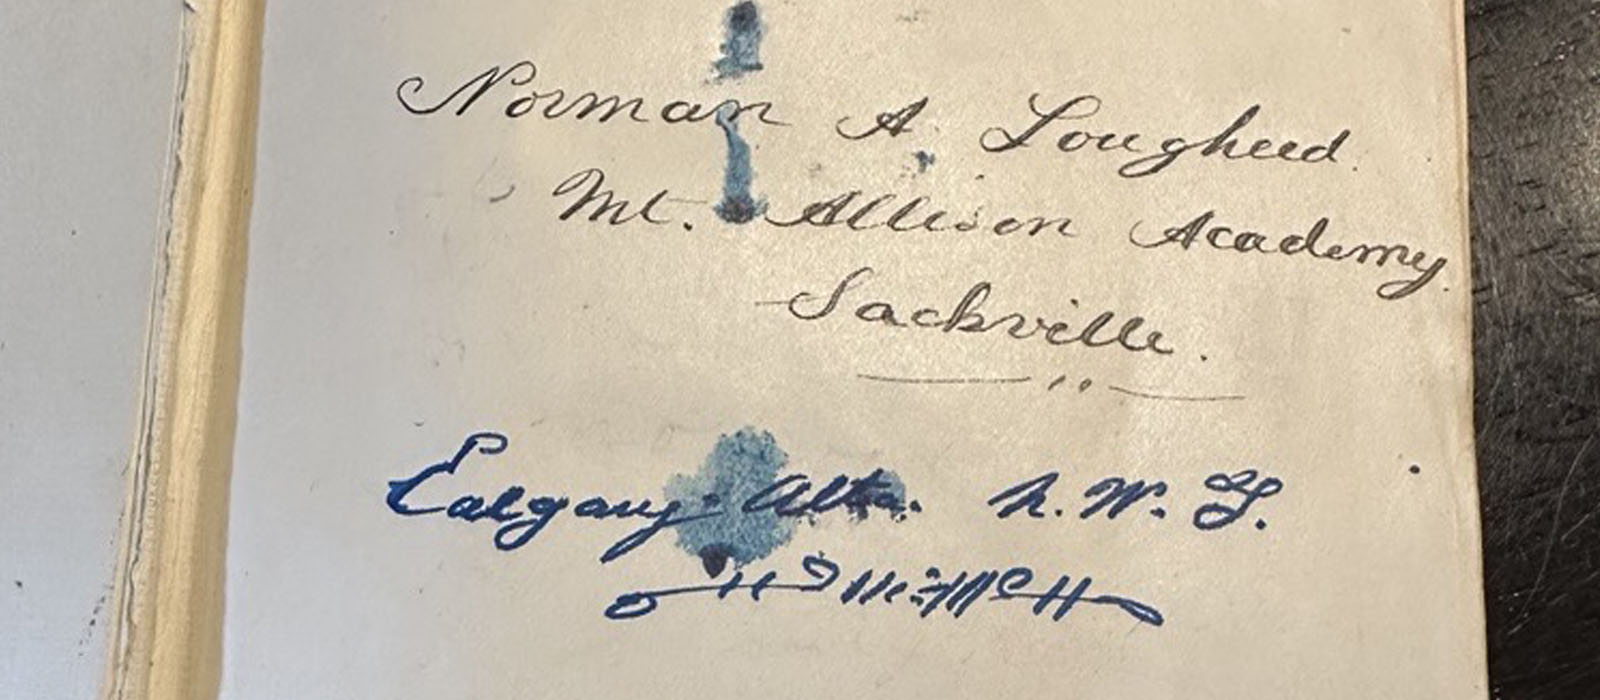 Norman A. Lougheed.
Mt. Allison Academy.
Sackville.
Calgary. Alta. N. W. T.